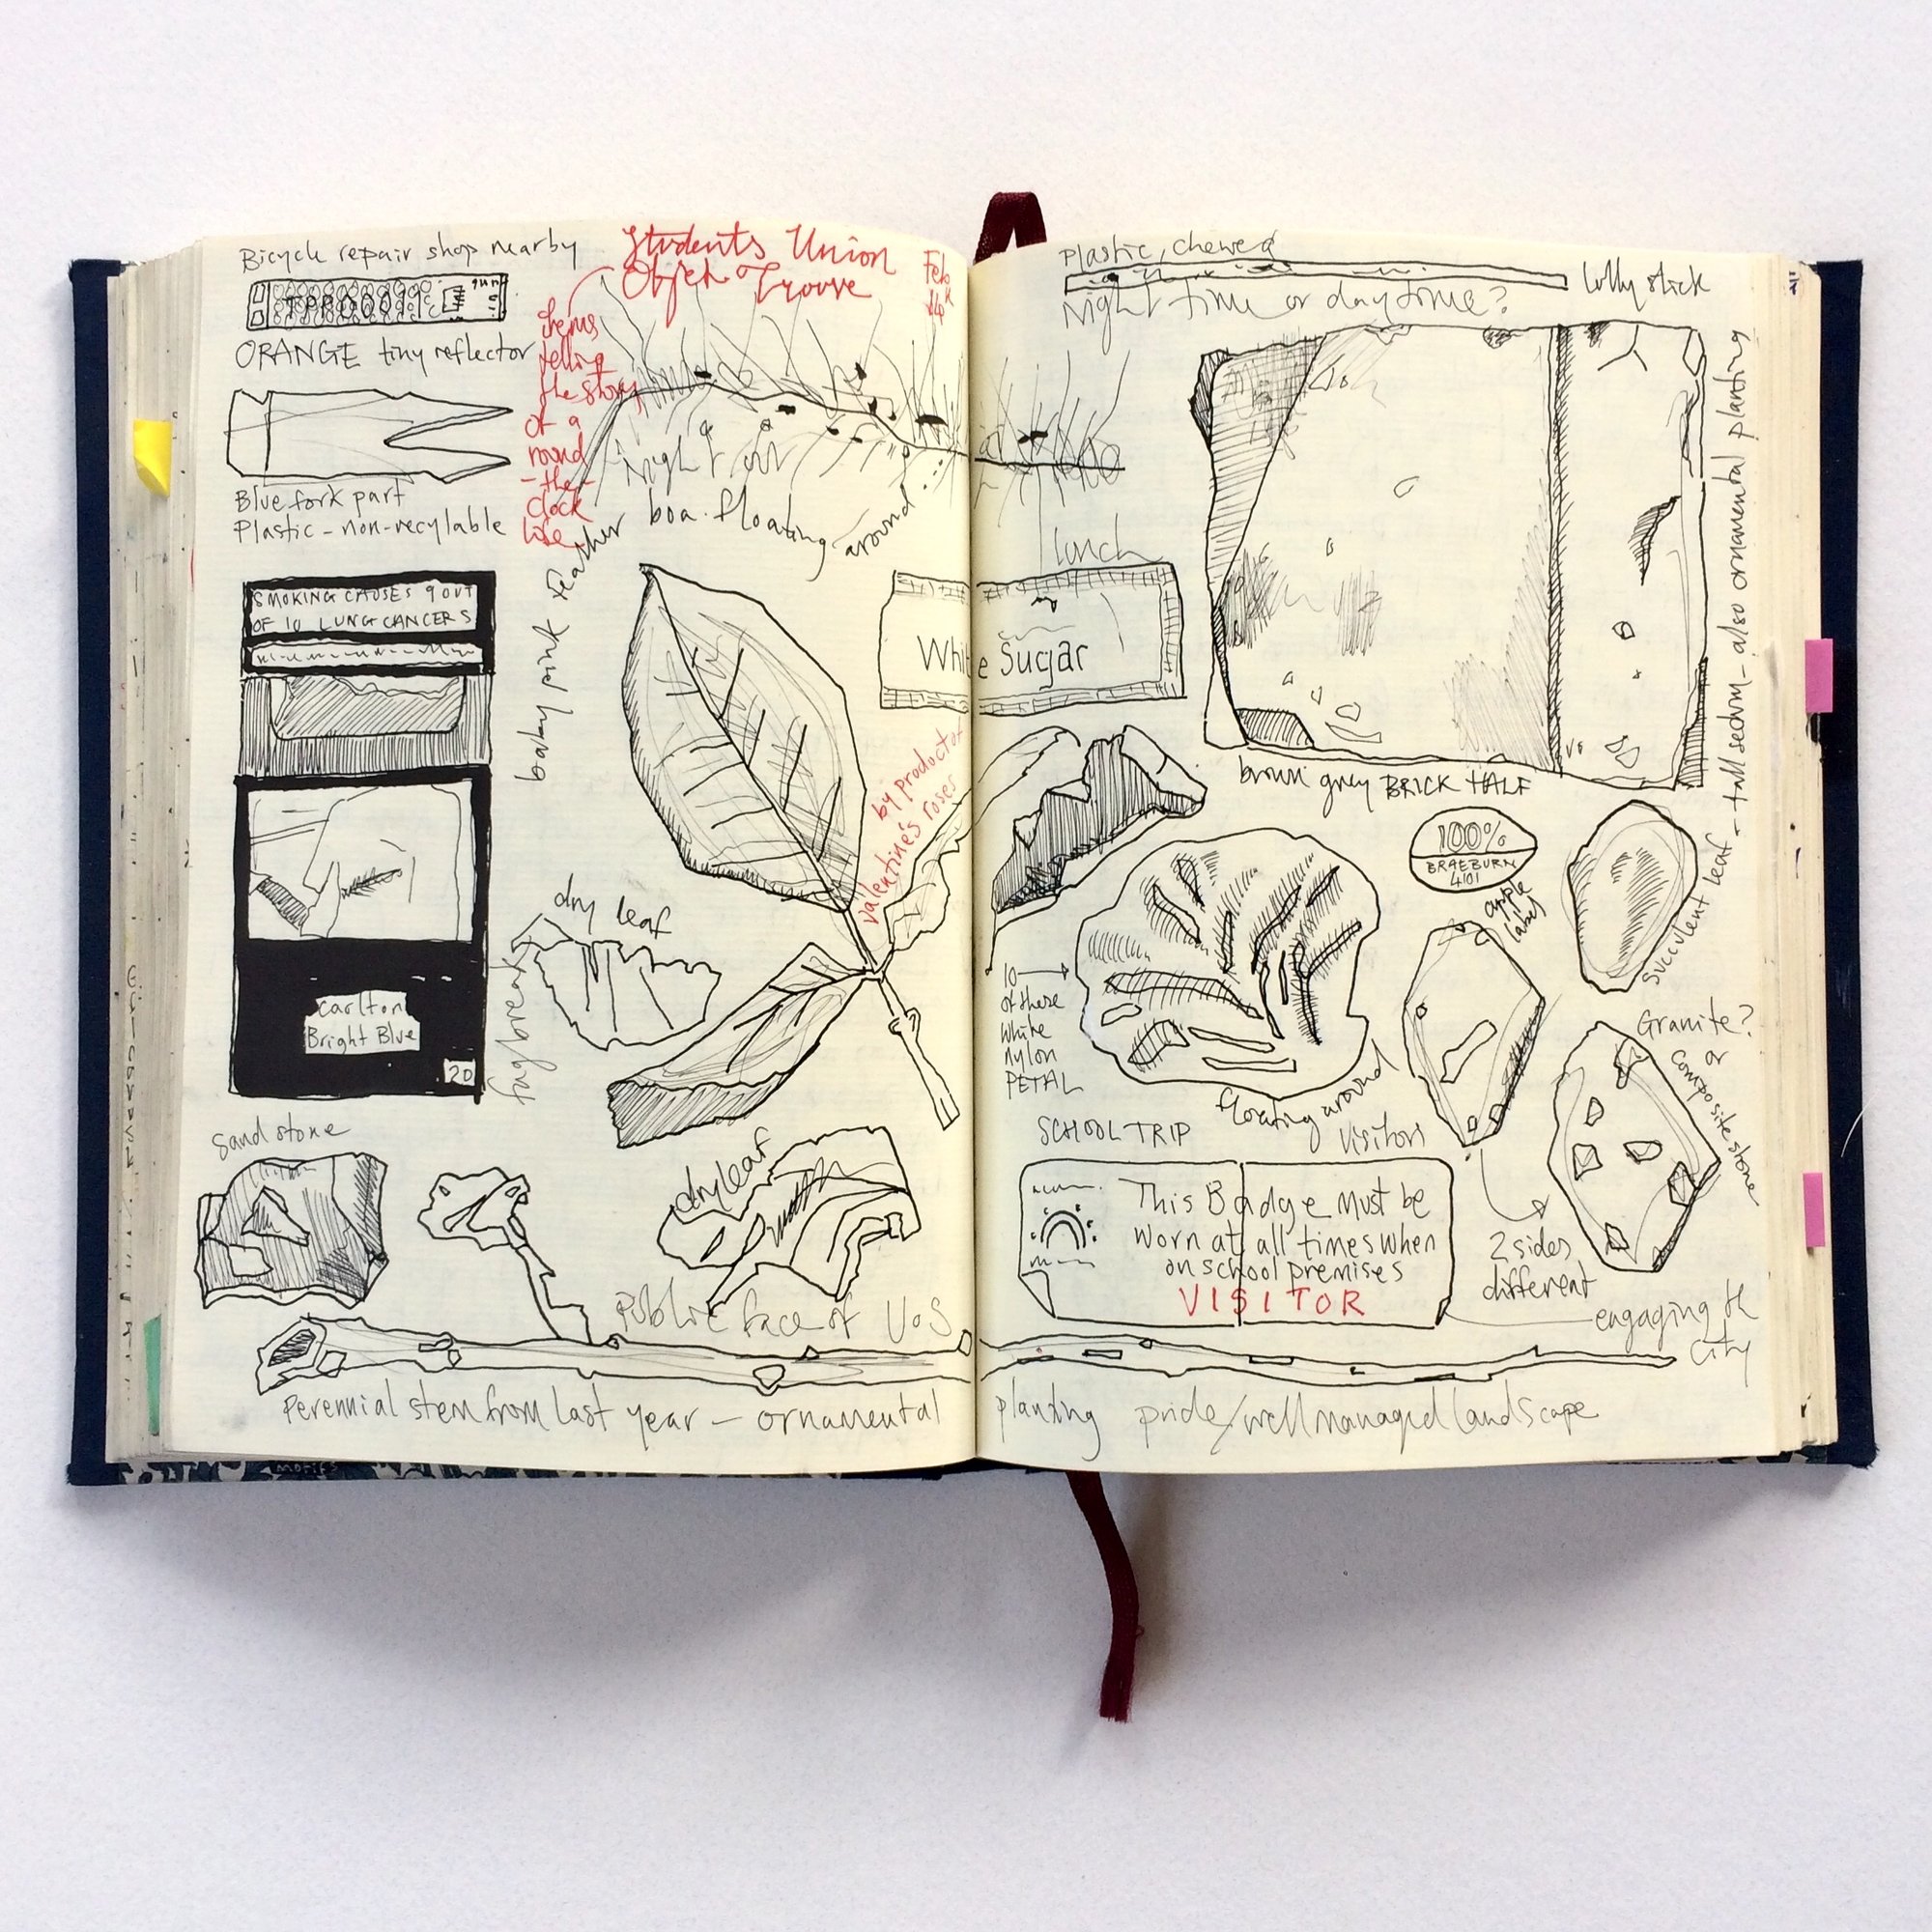 Bicycle repair shop nearby
TPR00011
ORANGE tiny reflector
Blue fork part
Plastic - non-recylable
Students Union
Objet Trouve
Feb
14
items
telling
the story
of a
round
- the -
clock
use
Night out
baby pink feather boa. floating around
SMOKING CAUSES 9 OUT
OF 10 LUNG CANCERS
carlton
Bright Blue
20
fagbreak
dry leaf
by product of
valentine's roses
lunch
White Sugar
sandstone
dry leaf
Public face of UoS
Perennial stem from last year - ornamental planting pride/well managed landscape
Plastic, chewed
lolly stick
Night time or daytime?
brown grey BRICK HALF
100%
BRAEBURN
4101
apple
label
succulent leaf - tall sedum - also ornamental planting
10
of these
white
nylon
PETAL
floating around
Granite?
or
composite stone
2 sides
different
SCHOOL TRIP
Visitors
This Badge Must be
worn at all times when
on school premises
VISITOR
engaging th
city